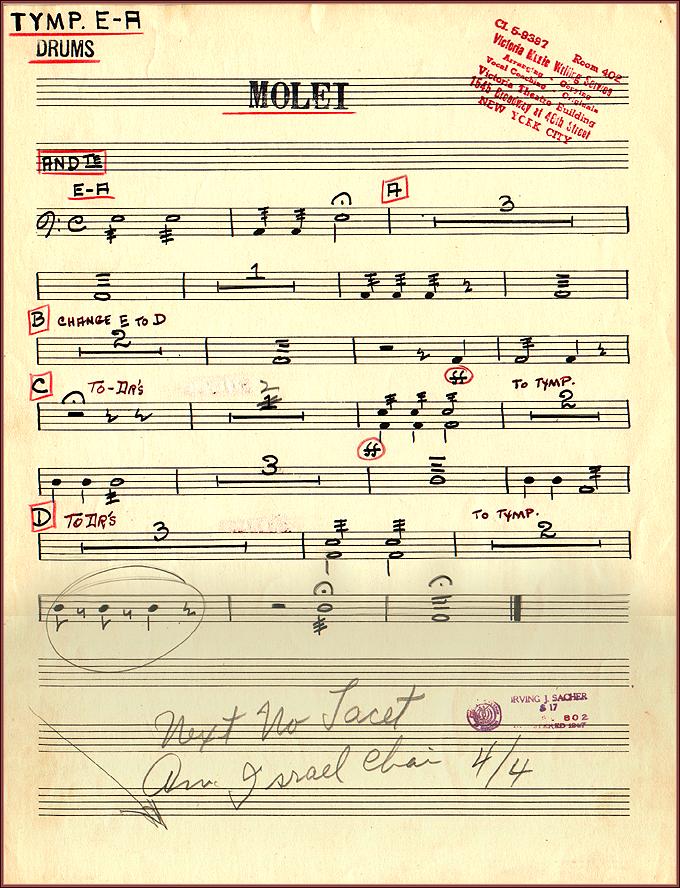 TYMP. E-A
DRUMS
CI. 5-9397 Room 402
Victoria Music Writing Service
Arranging - Copying
Vocal Coaching - Originals
Victoria Theatre Building
1547 Broadway at 46th Street
NEW YORK CITY
MOLEI
ANDTE
E-A
A
3
1
B CHANGE E TO D
2
C TO-DR'S
2
TO TYMP.
2
ff
ff
3
D TO DR'S
3
TO TYMP.
2
Next No Tacet
Am Israel Chai 4/4
IRVING J. SACHER
802